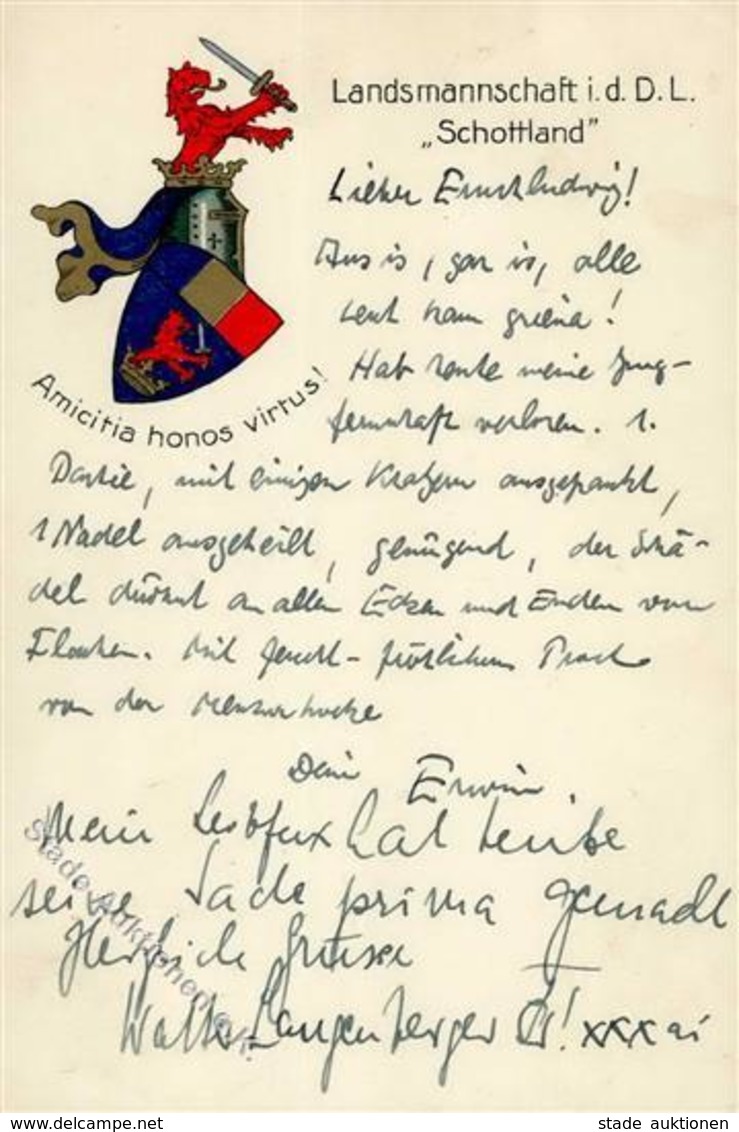 Landsmannschaft i. d. D. L.
„Schottland"
Amicitia honos virtus!
Lieber Ernstludwig!
Aus is, gar is, alle
Leut ham greina!
Hab heute meine Jung-
fernschaft verloren. 1.
Partie, mit einigen Kratzern ausgepaukt,
1 Nadel ausgeteilt, genügend, der Schä-
del dürmt an allen Ecken und Enden von
Flachen. Mit feucht-fröhlichem Prost
von der Mensurkneipe
Dein Erwin.
Mein Leibfux hat heute
seine Sache prima gemacht
Herzliche Grüsse
Walter Langenberger
stade Auktionen
delcampe.net
stade auktionen